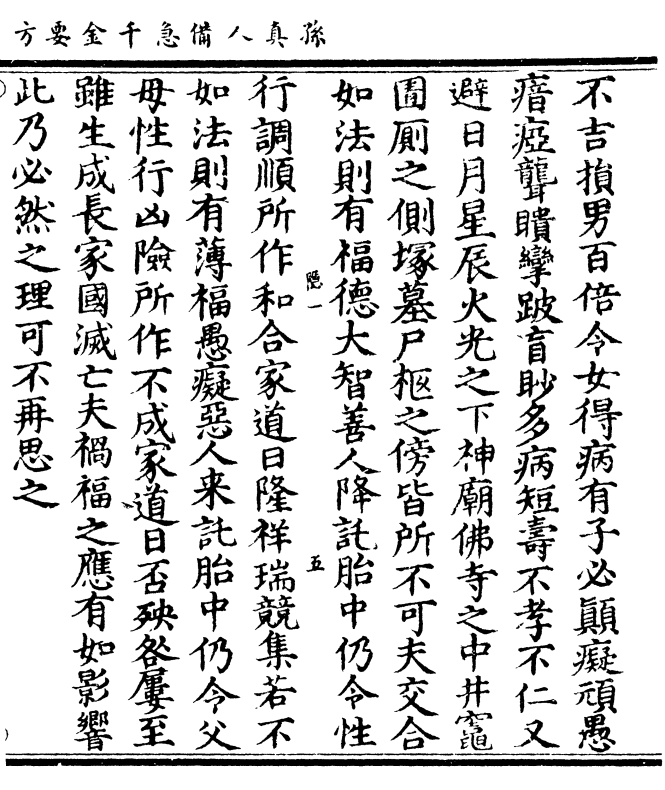 孫真人備急千金要方
不吉損男百倍令女得病有子必顛癡頑愚
瘖瘂聾聵攣跛盲眇多病短壽不孝不仁又
避日月星辰火光之下神廟佛寺之中井竈
圊厠之側塚墓尸柩之傍皆所不可夫交合
如法則有福德大智善人降託胎中仍令性
隱一
五
行調順所作和合家道日隆祥瑞競集若不
如法則有薄福愚癡惡人来託胎中仍令父
母性行凶險所作不成家道日否殃咎屢至
雖生成長家國滅亡夫禍福之應有如影響
此乃必然之理可不再思之